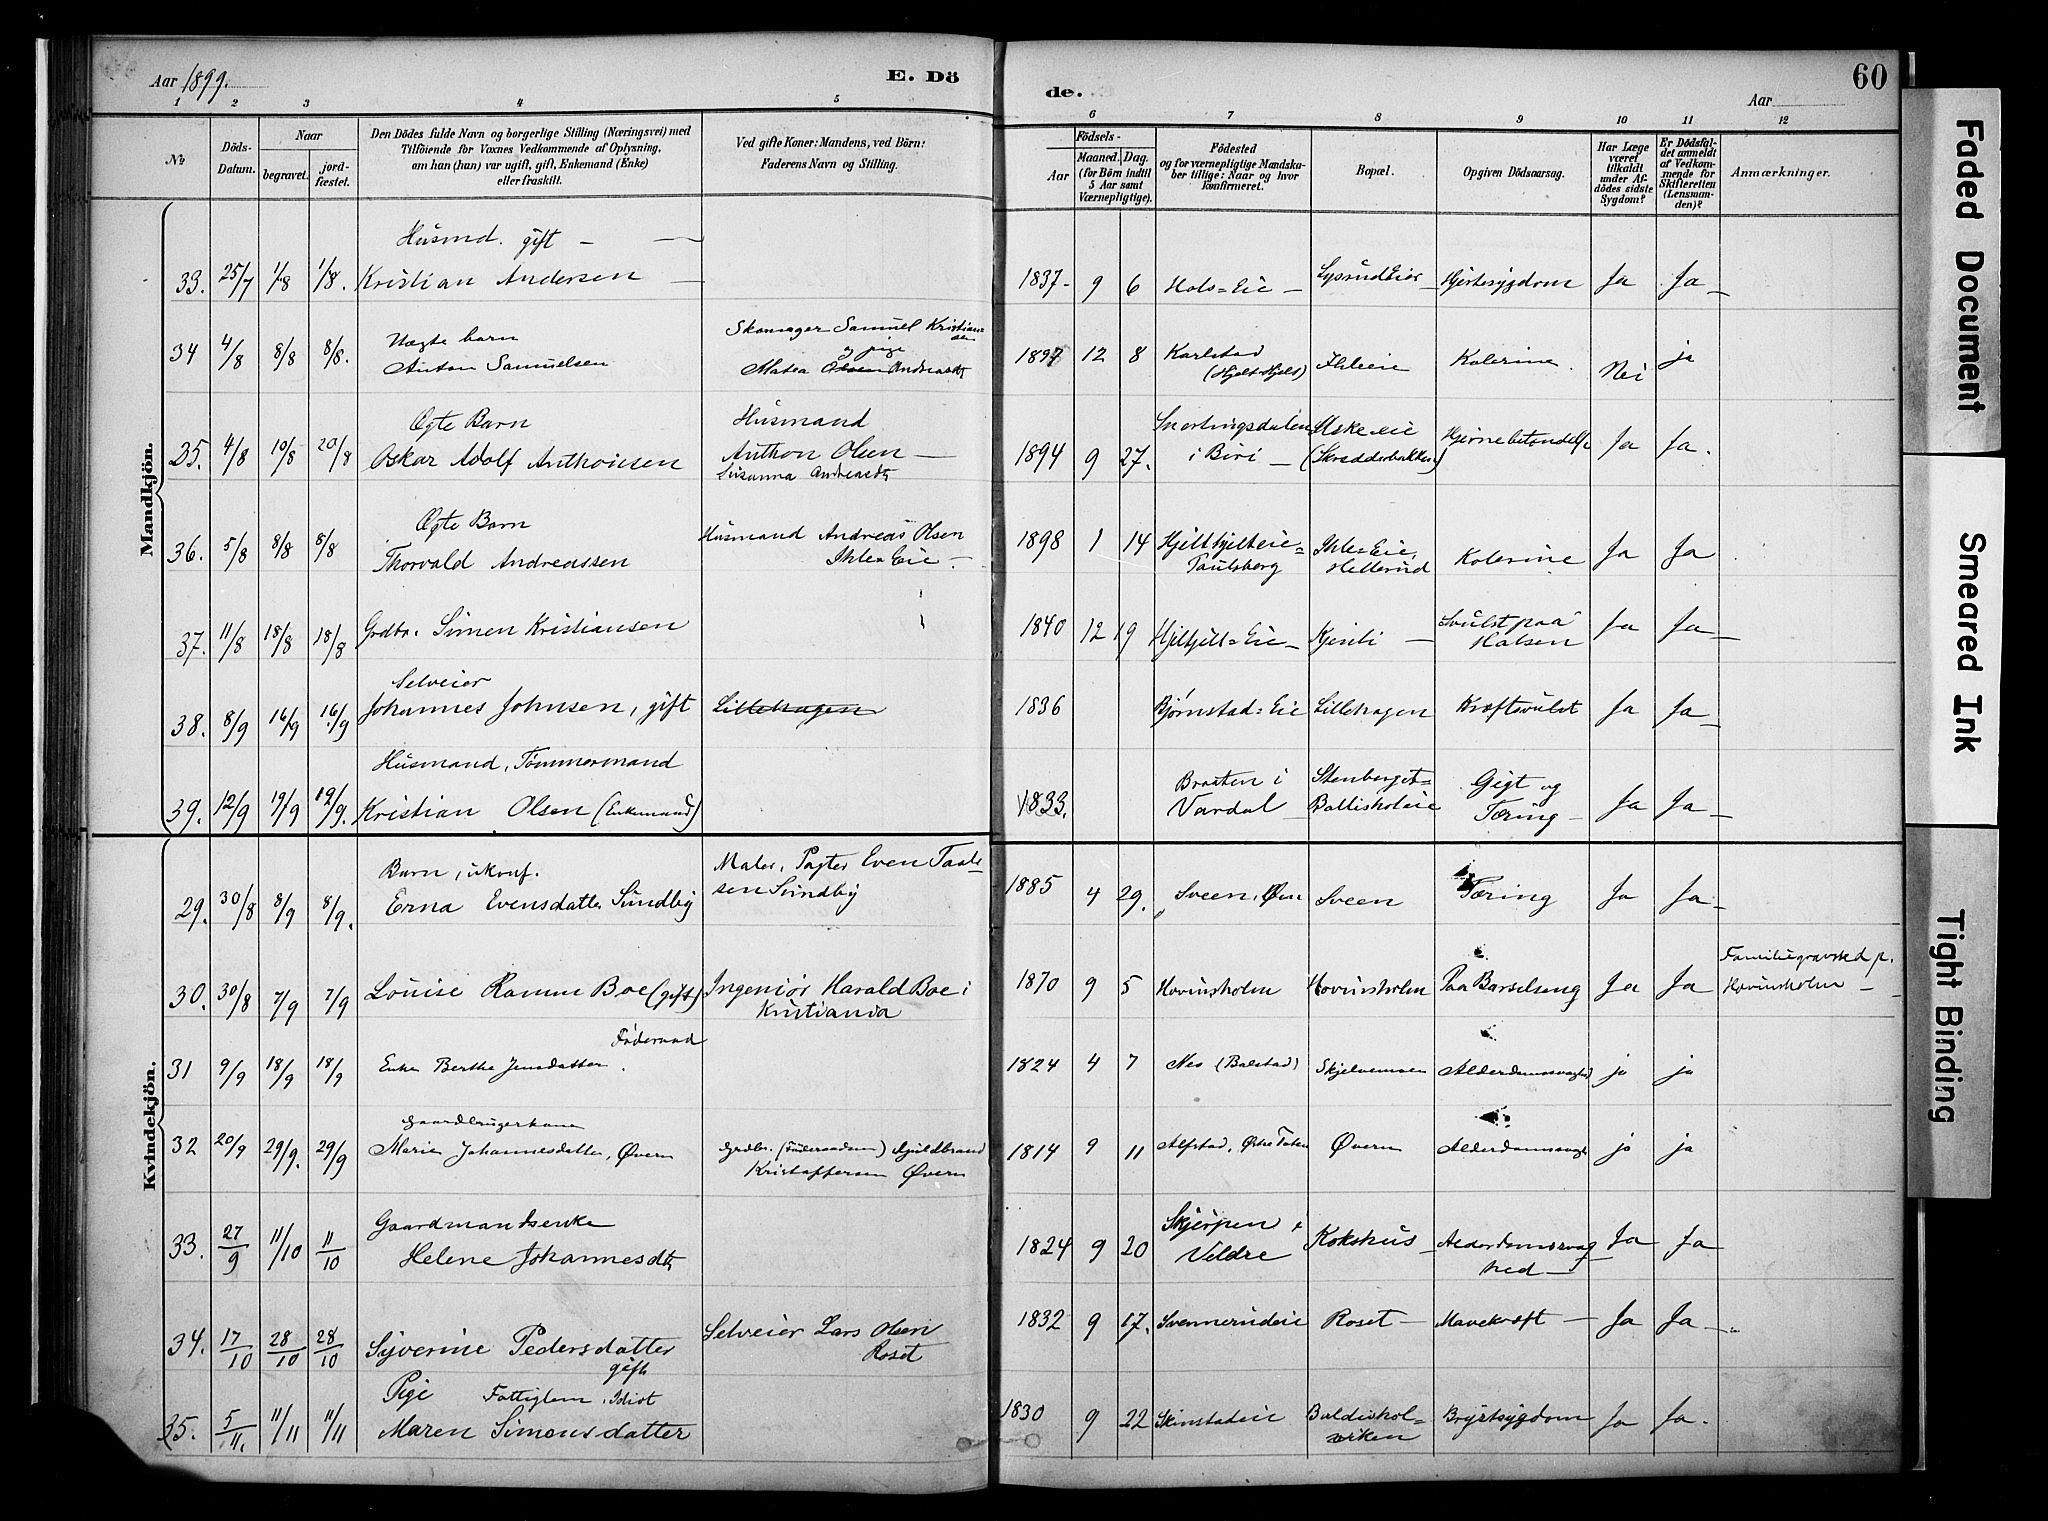 Aar 1899.
E. Dö
de.
Aar
60
1 2 3 4 5 6 7 8 9 10 11 12
No
Döds-Datum.
Naar
begravet.
jord-fæstet.
Den Dödes fulde Navn og borgerlige Stilling (Næringsvei) med
Tilföiende for Voxnes Vedkommende af Oplysning,
om han (hun) var ugift, gift, Enkemand (Enke)
eller fraskilt.
Ved gifte Koner: Mandens, ved Börn:
Faderens Navn og Stilling.
Födsels-
Aar
Maaned. Dag.
(for Börn indtil
5 Aar samt
Værnepligtige).
Födested
og for værnepligtige Mandska-
ber tillige: Naar og hvor
konfirmeret.
Bopæl.
Opgiven Dödsaarsag.
Har Læge
været
tilkaldt
under Af-
dödes sidste
Sygdom?
Er Dödsfal-
det anmeldt
af Vedkom-
mende for
Skifteretten
(Lensman-
den)?
Anmærkninger.
Mandkjön.
Husmd. gift —
33. 25/7 1/8 1/8. Kristian Andersen — 1837- 9 6 Hols=Eie — Lysrudeier Hjertesygdom Ja Ja —
Uægte barn Skomager Samuel Kristian=
sen
34 4/8 8/8 8/8. Anton Samuelsen og pige Matea Andreasdt 1897 12 8 Karlstad (Hjelt-Hjelt) Ihleeie Kolerine. Nei ja
Ægte Barn Husmand
35. 4/8 10/8 20/8 Oskar Adolf Anthonsen Anthon Olsen — 1894 9 27. Snertingsdalen i Biri — (Skrædderbakken) Hjernebetændelse Ja Ja.
Susanna Andreasdt
Ægte Barn Husmand Andreas Olsen
36. 5/8 8/8 8/8 Thorvald Andreassen Ihle=Eie. 1898 1 14 Hjelthjelteie= Paulsberg Ihle=Eie, Hellerud Kolerine Ja Ja
37. 11/8 18/8 18/8 Grdbr. Simen Kristiansen 1840 12 19 Hjeltjelt=Eie — — Svulst paa Halsen Ja Ja —
Selveier
38. 8/9 16/9 16/9 Johannes Johnsen, gift Lillehagen 1836 Bjørnstad=Eie Lillehagen Kræftsvulst Ja Ja —
Husmand, Tømmermand
39. 12/9 19/9 19/9. Kristian Olsen (Enkemand) 1833. Braaten i Vardal Stenberget= Ballisholeie Gigt og Tæring — Ja Ja —
Kvindekjön.
Barn, ukonf. Maler, Pagter Even Paul=
29. 30/8 8/9 8/9. Erna Evensdatter Sundby sen Sundby 1885 4 29. Sveen, Øvre Sveen Tæring Ja Ja —
30. 30/8 7/9 7/9 Louise Ramm Boe (gift) Ingeniør Harald Boe i Kristiania 1870 9 5 Hovinsholm Hovinsholm Paa Barselseng Ja Ja Familiegravsted p. Hovinsholm —
Føderaad
31 9/9 18/9 18/9 Enke Berthe Jensdatter. 1824 4 7 Nes (Balstad) Alderdomssvaghd ja ja
Gaardbrugerkone
32 20/9 29/9. 29/9 Marie Johannesdatter, Øvern Grdbr. (Föderaadsm) Hjuldbrand Kristoffersen Øvern 1814 9 11 Alfstad, Østre Toten Øvern Alderdomssvaghd ja ja
Gaardmandsenke
33. 27/9 11/10 11/10 Helene Johannesdt 1824 9 20 Skjerpen i Veldre Kokshus Alderdomssvag hed — Ja Ja
34. 17/10 28/10 28/10 Syverine Pedersdatter gift Selveier Lars Olsen Roset 1832 9 17. Svennerudeie Roset — Mavekræft — Ja Ja —
Pige Fattiglem, Idiot
35. 5/11. 11/11 11/11 Maren Simonsdatter 1830 9 22 Skinstadeie Baldishol= Brystsygdom Ja Ja.
Faded Document
Smeared Ink
Tight Binding